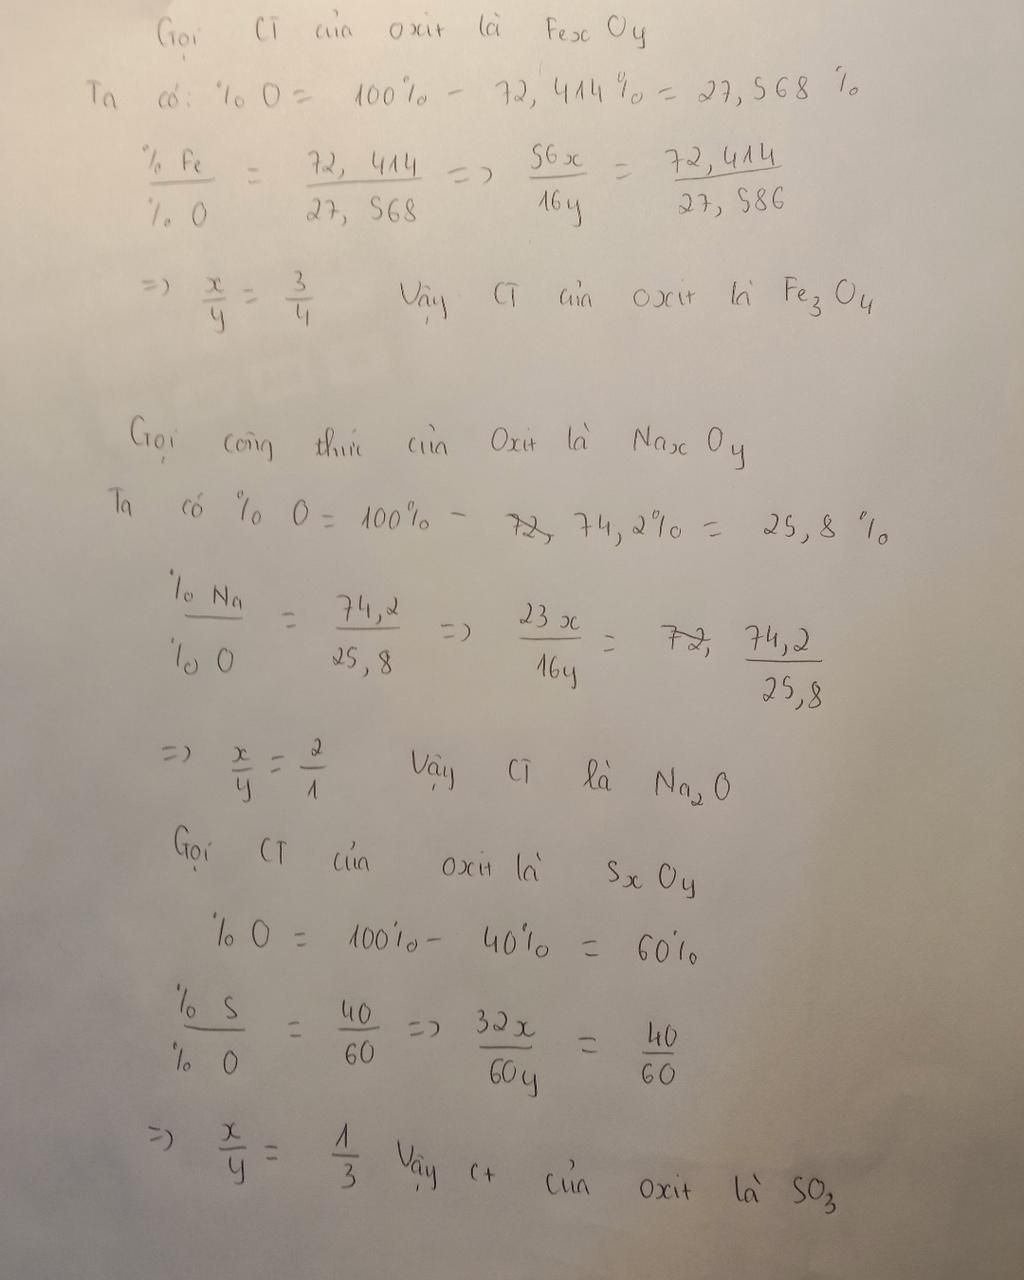 Gọi CT của oxit là FexOy
Ta có: % O = 100% - 72,414% = 27,568 %
% Fe / % O = 72,414 / 27,568 => 56x / 16y = 72,414 / 27,586
=> x/y = 3/4 Vậy CT của oxit là Fe3O4
Gọi công thức của Oxit là NaxOy
Ta có % O = 100% - 72, 74,2% = 25,8 %
% Na / % O = 74,2 / 25,8 => 23x / 16y = 72, 74,2 / 25,8
=> x/y = 2/1 Vậy CT là Na2O
Gọi CT của oxit là SxOy
% O = 100% - 40% = 60%
% S / % O = 40/60 => 32x / 60y = 40/60
=> x/y = 1/3 Vậy ct của oxit là SO3